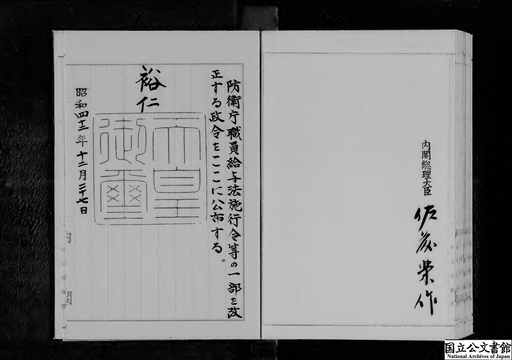 防衛庁職員給与法施行令等の一部を改
正する政令をここに公布する。
裕仁
天皇
御璽
昭和四十三年十二月二十七日
内閣総理大臣
佐藤榮作
国立公文書館
National Archives of Japan